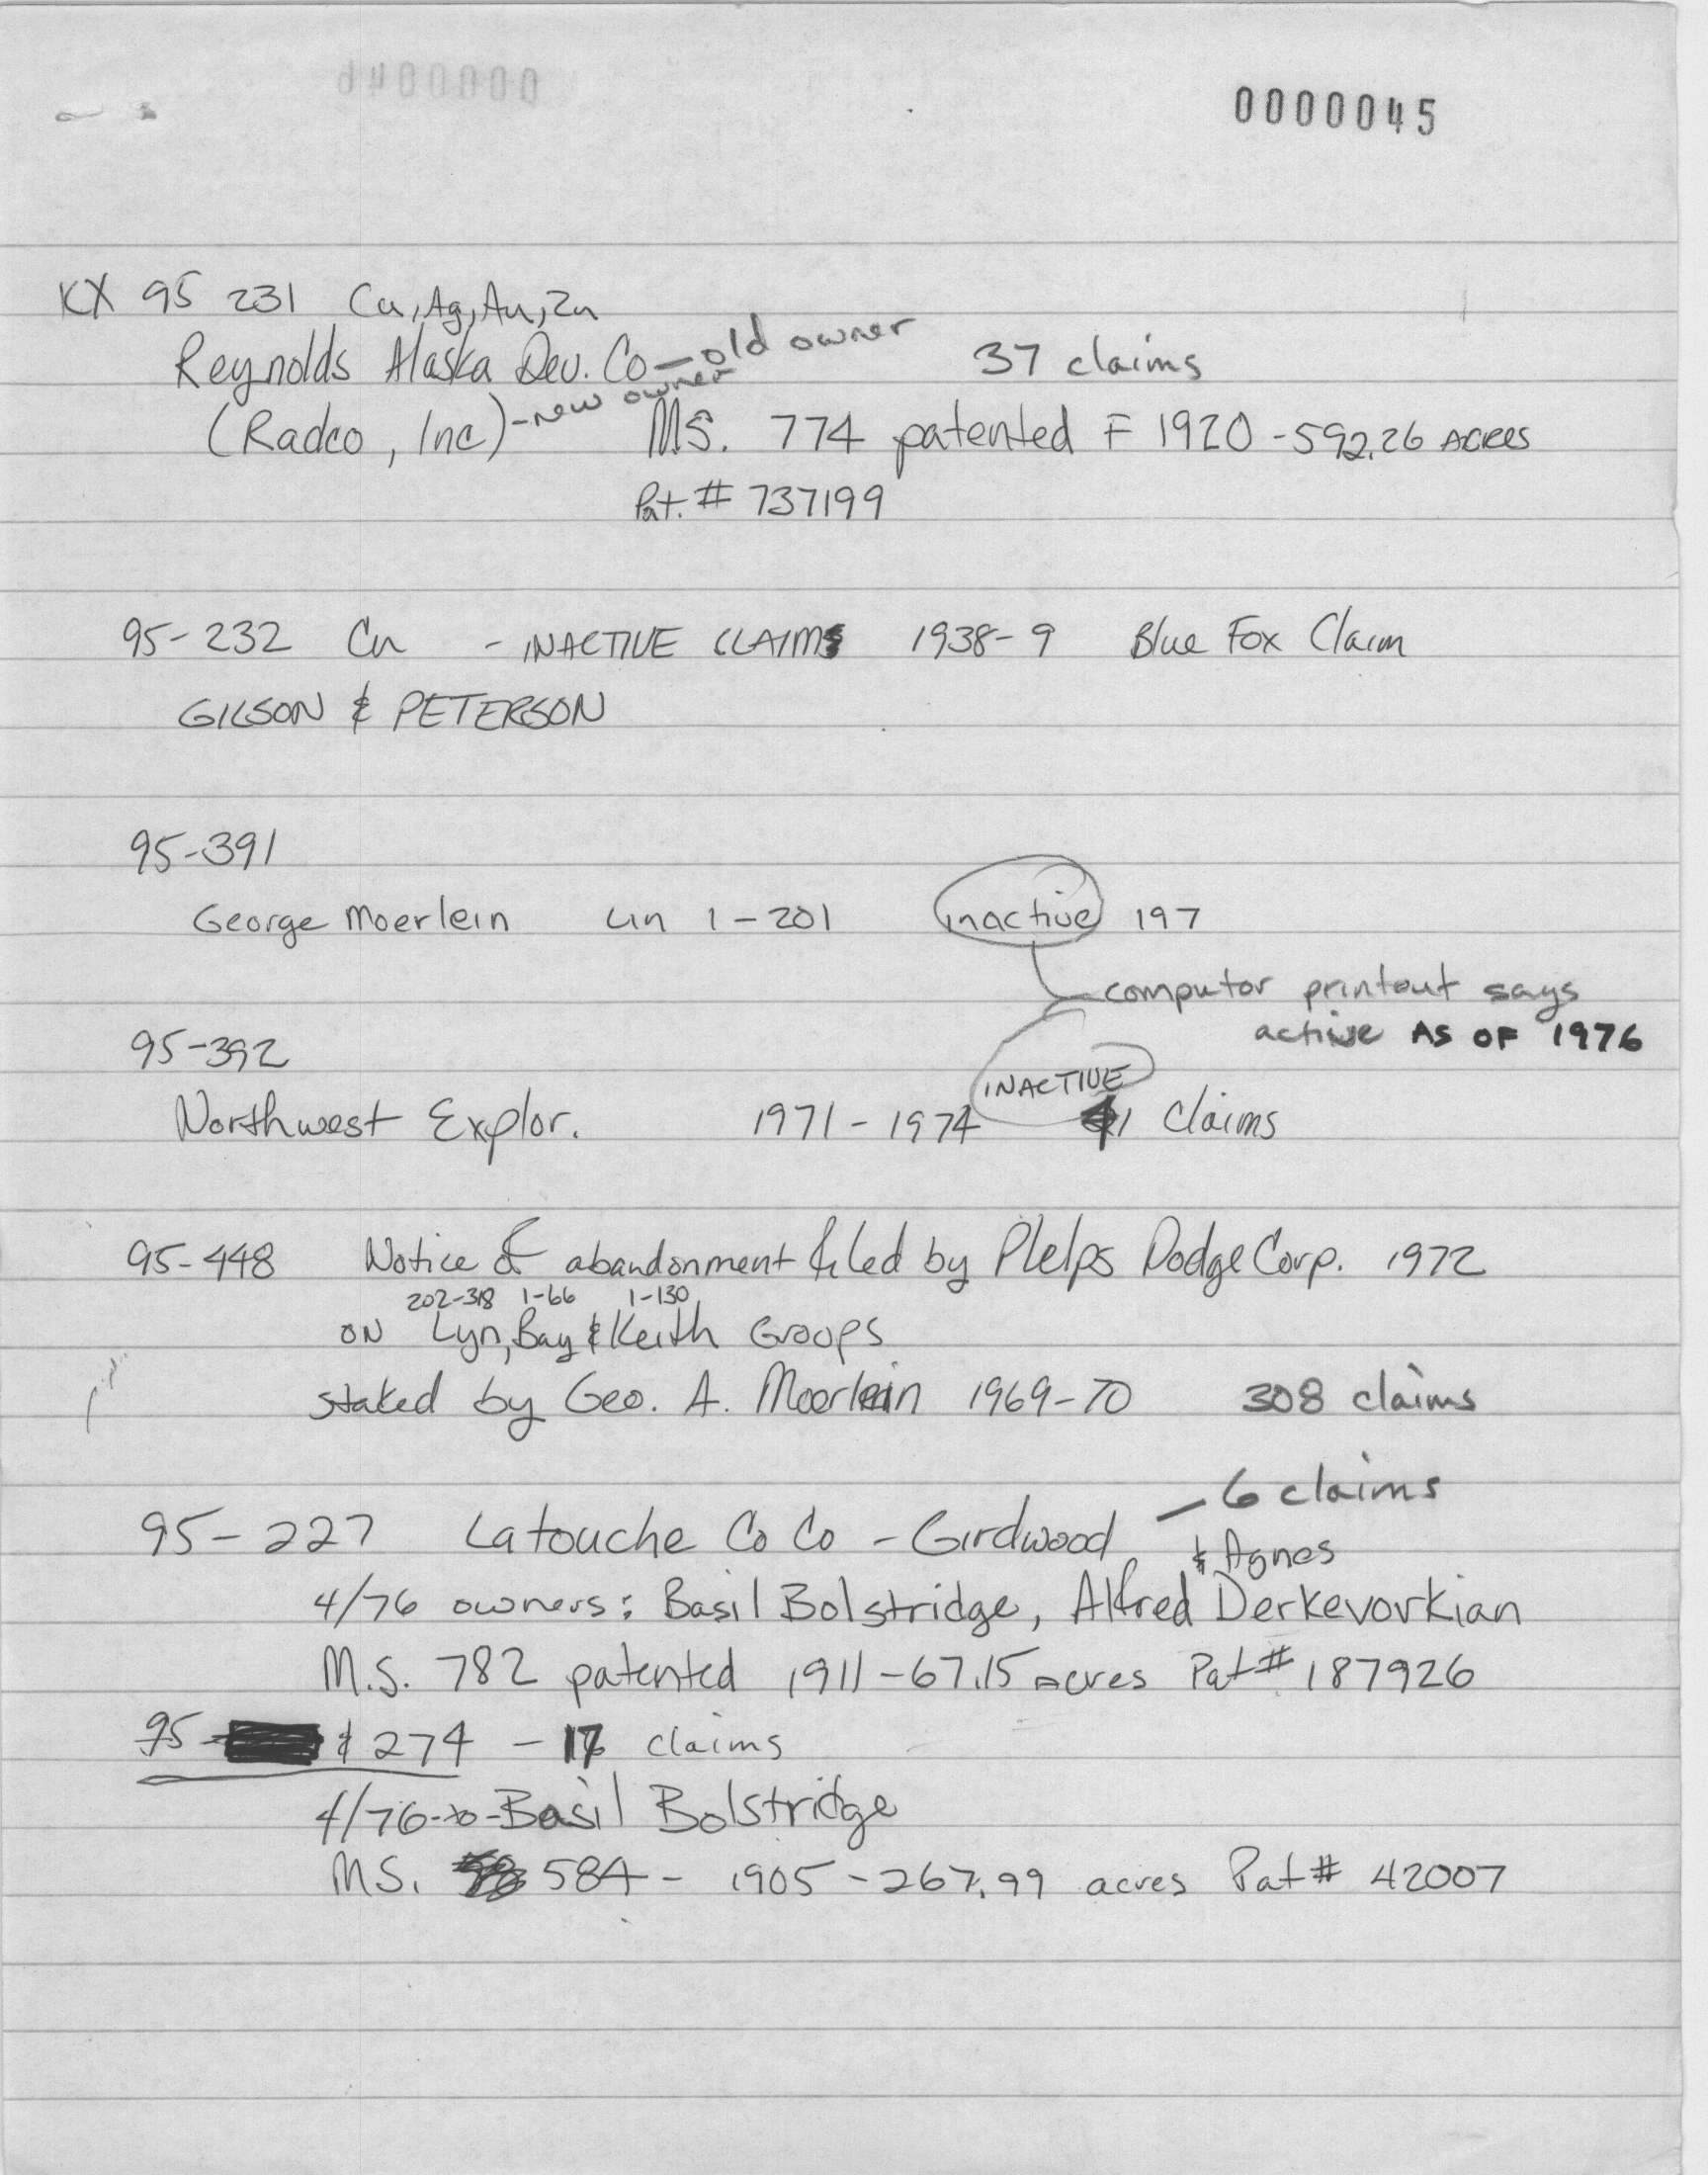 0000045
KX 95 231 Cu, Ag, Au, Zn
Reynolds Alaska Dev. Co — old owner 37 claims
(Radco, Inc) - new owner M.S. 774 patented F 1920 - 592.26 ACRES
Pat. # 737199
95-232 Cu - INACTIVE CLAIMS 1938-9 Blue Fox Claim
GILSON & PETERSON
95-391
George Moerlein Lin 1-201 inactive 197
computor printout says
active AS OF 1976
95-392
INACTIVE
Northwest Explor. 1971-1974 41 Claims
95-448 Notice of abandonment filed by Phelps Dodge Corp. 1972
202-318 1-66 1-130
ON Lyn, Bay & Keith Groups
staked by Geo. A. Moerlein 1969-70 308 claims
95-227 Latouche Co Co - Girdwood — 6 claims
& Agnes
4/76 owners: Basil Bolstridge, Alfred Derkevorkian
M.S. 782 patented 1911-67.15 acres Pat# 187926
95- & 274 - 17 claims
4/76-to-Basil Bolstridge
MS. 584 - 1905 - 267.99 acres Pat# 42007